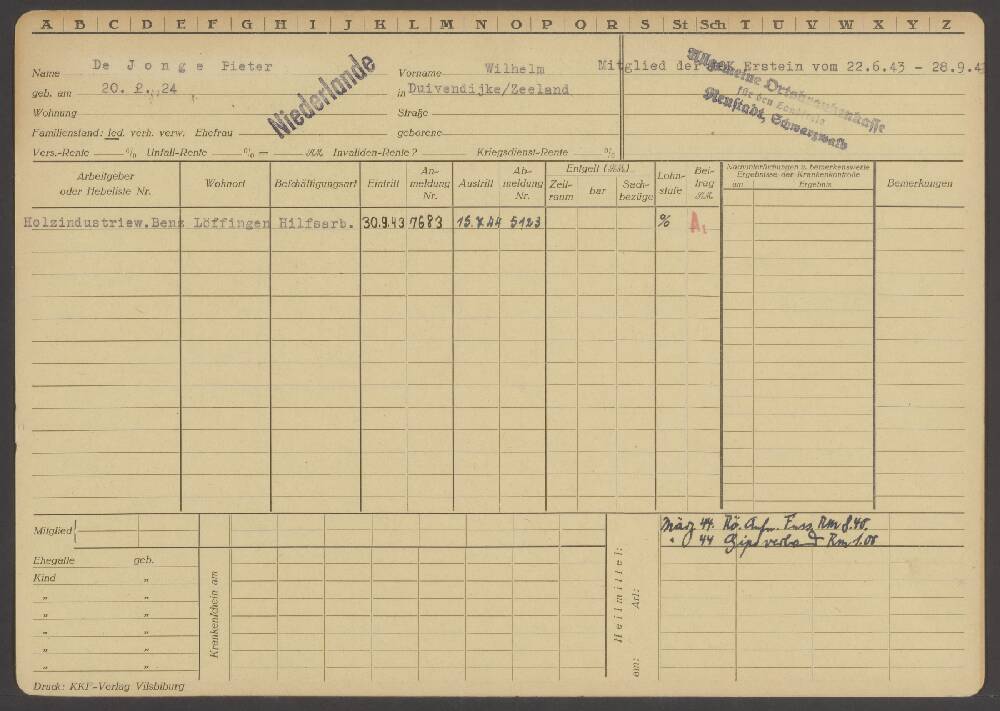 A B C D E F G H I J K L M N O P Q R S St Sch T U V W X Y Z
Name De Jonge Pieter Vorname Wilhelm Mitglied der AOK Erstein vom 22.6.43 - 28.9.43
geb. am 20. 2. 24 in Duivendijke/Zeeland
Wohnung Straße
Familienstand: led. verh. verw. Ehefrau geborene
Vers.-Rente % Unfall-Rente % = RM. Invaliden-Rente? Kriegsdienst-Rente %
Niederlande
Allgemeine Ortskrankenkasse
für den Landkreis
Neustadt, Schwarzwald
Arbeitgeber oder Hebeliste Nr. Wohnort Beschäftigungsart Eintritt An-meldung Nr. Austritt Ab-meldung Nr. Entgelt (RM.) Zeit-raum bar Sach-bezüge Lohn-stufe Bei-trag RM. Nachuntersuchungen u. bemerkenswerte Ergebnisse der Krankenkontrolle am Ergebnis Bemerkungen
Holzindustriew.Benz Löffingen Hilfsarb. 30.9.43 7683 15.7.44 5123 % A1
Mitglied
Ehegatte geb.
Kind "
" "
" "
" "
" "
" "
Krankenschein am
Heilmittel:
Art:
am:
März 44. Rö. Aufn. Fuss RM 8.40.
" 44 Gipsverband RM 1.00
Druck: KKF-Verlag Vilsbiburg